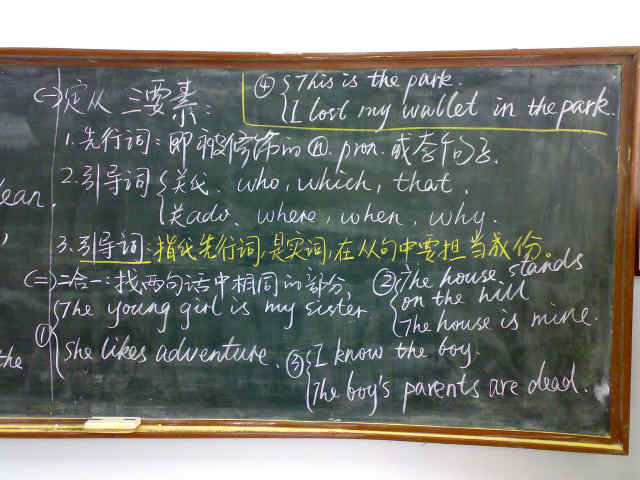 (一) 定从 三要素：
1. 先行词：即被修饰的 n. pron 或 整句话.
2. 引导词 { 关代. who, which, that.
关ado. where, when, why.
3. 引导词：指代先行词, 是实词, 在从句中要担当成份。
(二) 二合一：找两句话中相同的部分.
① { The young girl is my sister
She likes adventure.
② { The house stands
on the hill
The house is mine.
③ { I know the boy.
The boy's parents are dead.
④ { This is the park.
I lost my wallet in the park.
ean.
the